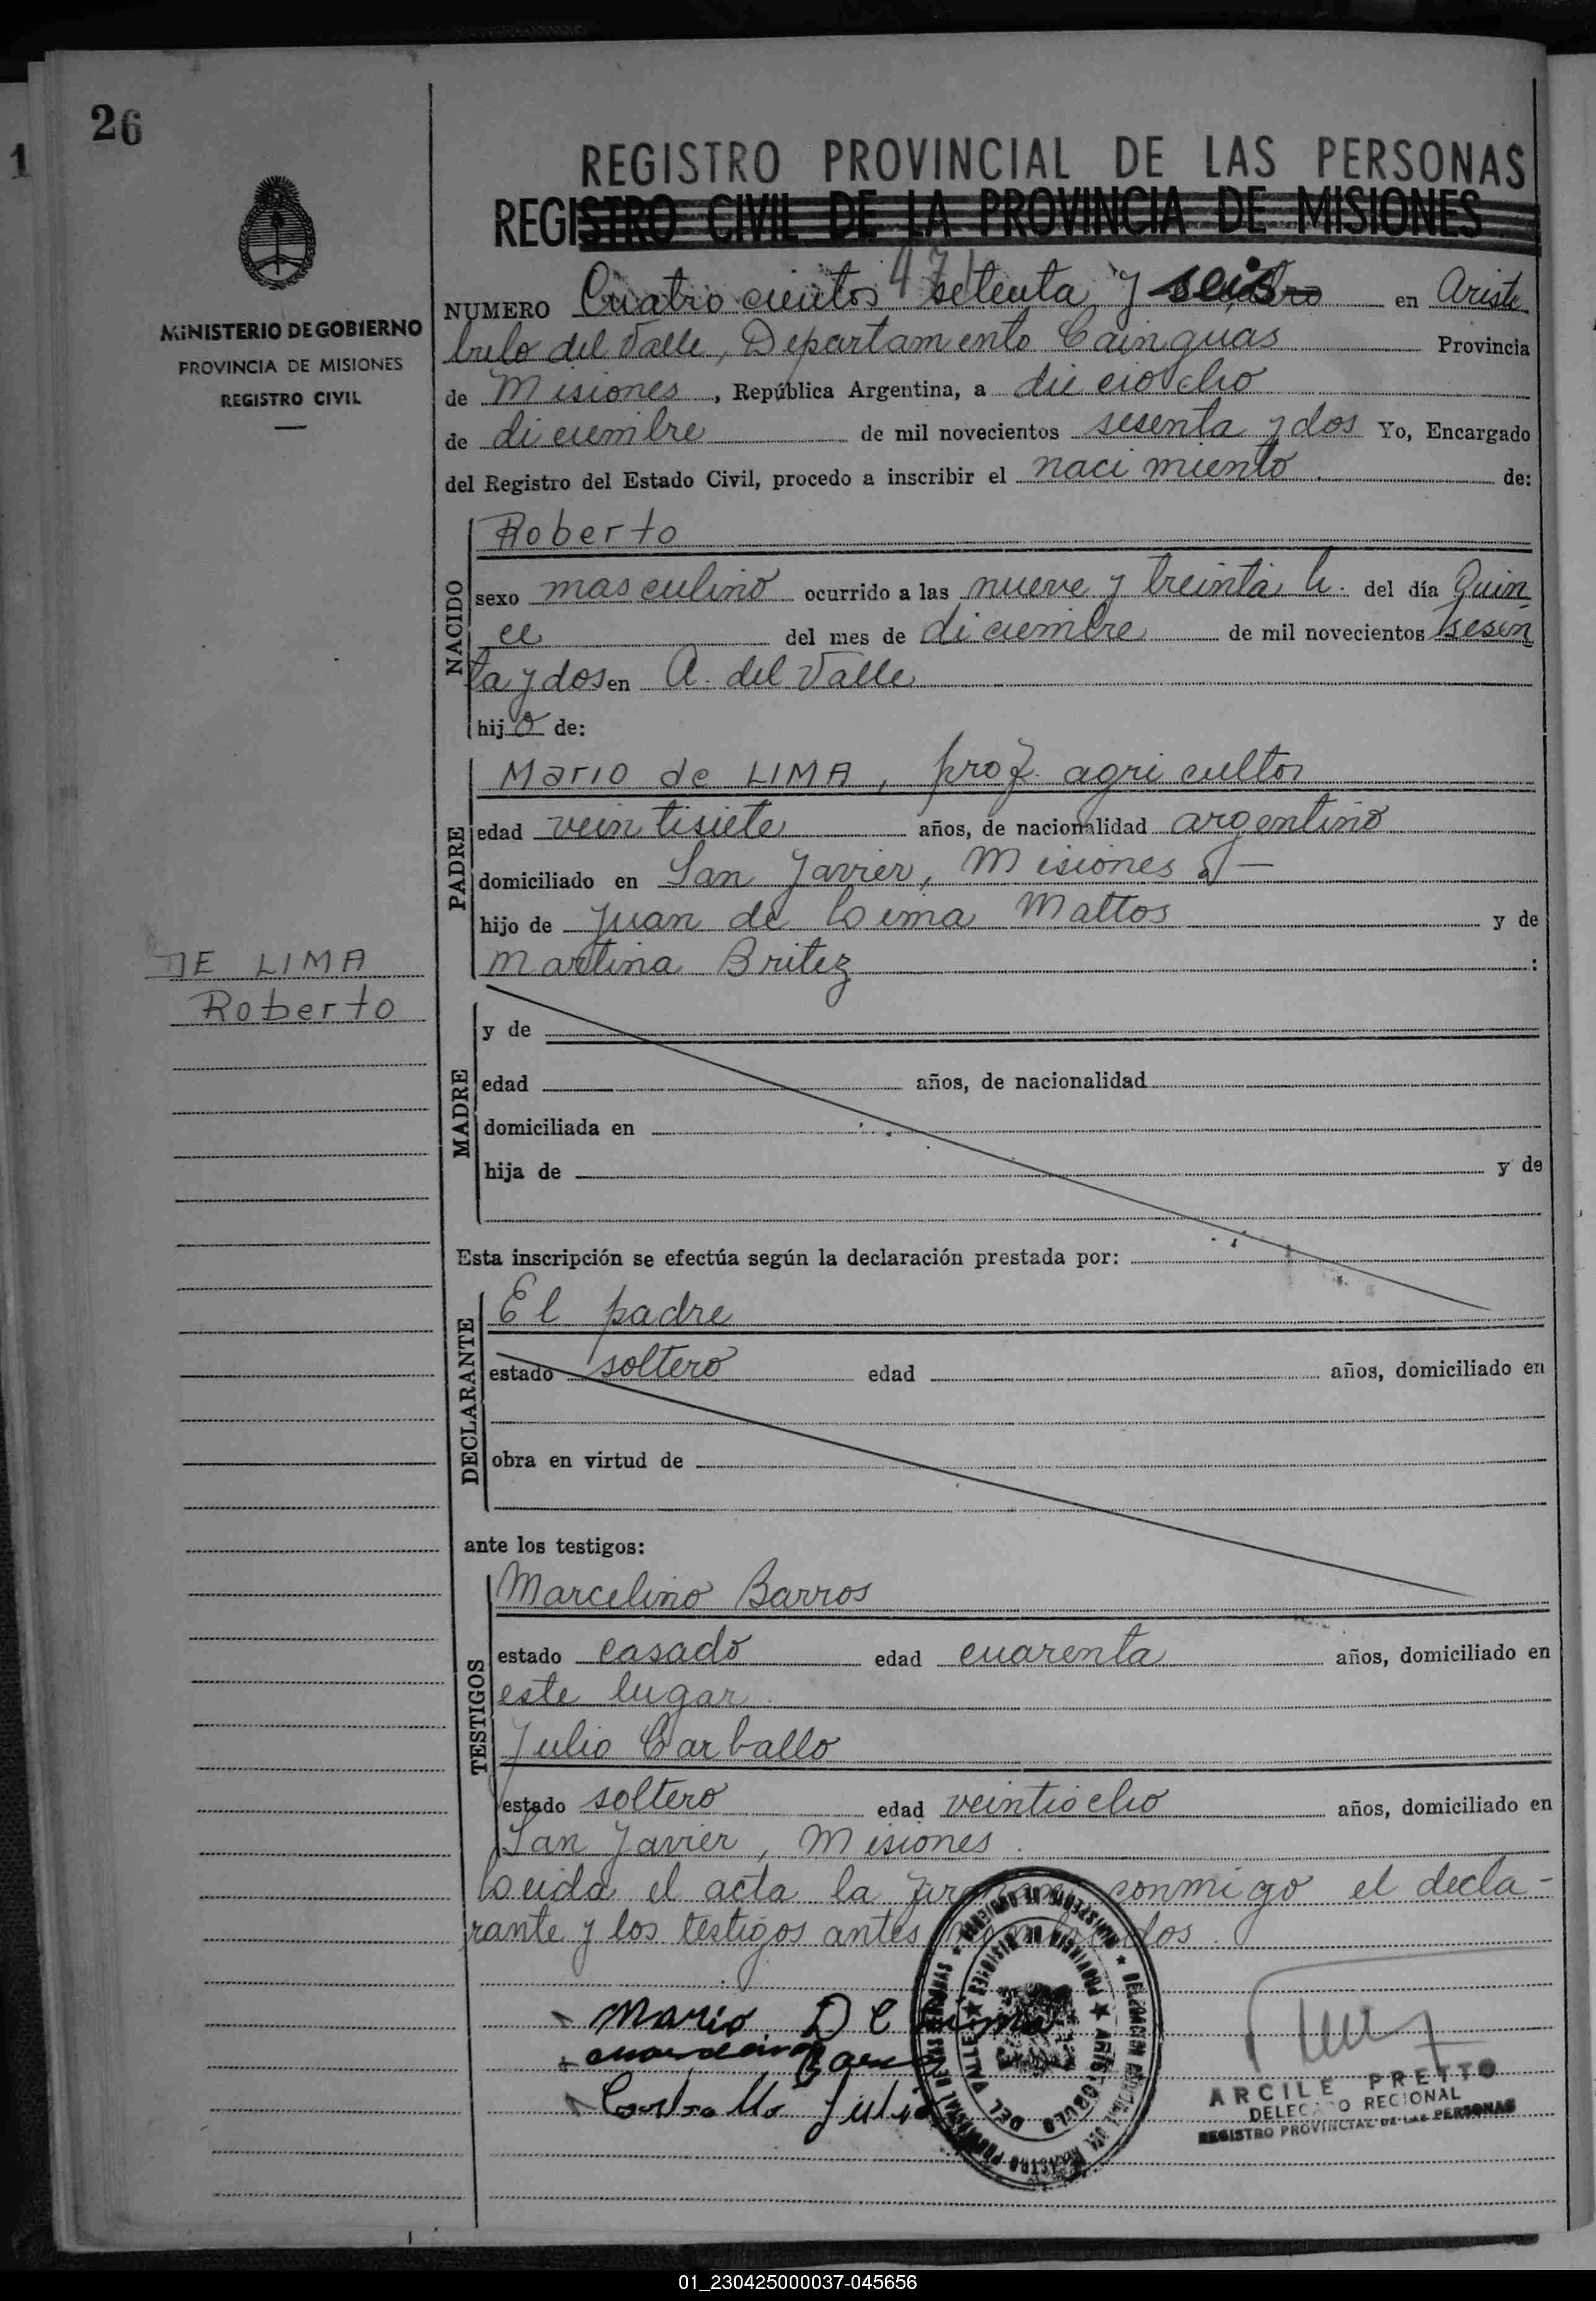 26
1
REGISTRO PROVINCIAL DE LAS PERSONAS
REGISTRO CIVIL DE LA PROVINCIA DE MISIONES
MINISTERIO DE GOBIERNO
PROVINCIA DE MISIONES
REGISTRO CIVIL
NUMERO Cuatrocientos 47 setenta y seis en Aristo
bulo del Valle, Departamento Cainguas Provincia
de Misiones, República Argentina, a dieciocho
de diciembre de mil novecientos sesenta y dos Yo, Encargado
del Registro del Estado Civil, procedo a inscribir el nacimiento de:
NACIDO
Roberto
sexo masculino ocurrido a las nueve y treinta h. del día Quin
ce del mes de diciembre de mil novecientos sesen
ta y dos en A. del Valle
hijo de:
PADRE
Mario de LIMA, prof. agricultor
edad veintisiete años, de nacionalidad argentino
domiciliado en San Javier, Misiones
hijo de Juan de Lima Mattos y de
Martina Britez :
DE LIMA
Roberto
MADRE
y de
edad años, de nacionalidad
domiciliada en
hija de y de
Esta inscripción se efectúa según la declaración prestada por:
DECLARANTE
El padre
estado soltero edad años, domiciliado en
obra en virtud de
ante los testigos:
TESTIGOS
Marcelino Barros
estado casado edad cuarenta años, domiciliado en
este lugar
Julio Carballo
estado soltero edad veintiocho años, domiciliado en
San Javier, Misiones.
Leida el acta la firman conmigo el decla-
rante y los testigos antes nombrados.
Mario De Lima
Carballo Julio
DEL VALLE ★ PROVINCIA DE MISIONES ★ ARISTOBULO
ARCILE PRETTO
DELEGADO REGIONAL
REGISTRO PROVINCIAL DE LAS PERSONAS
01_230425000037-045656